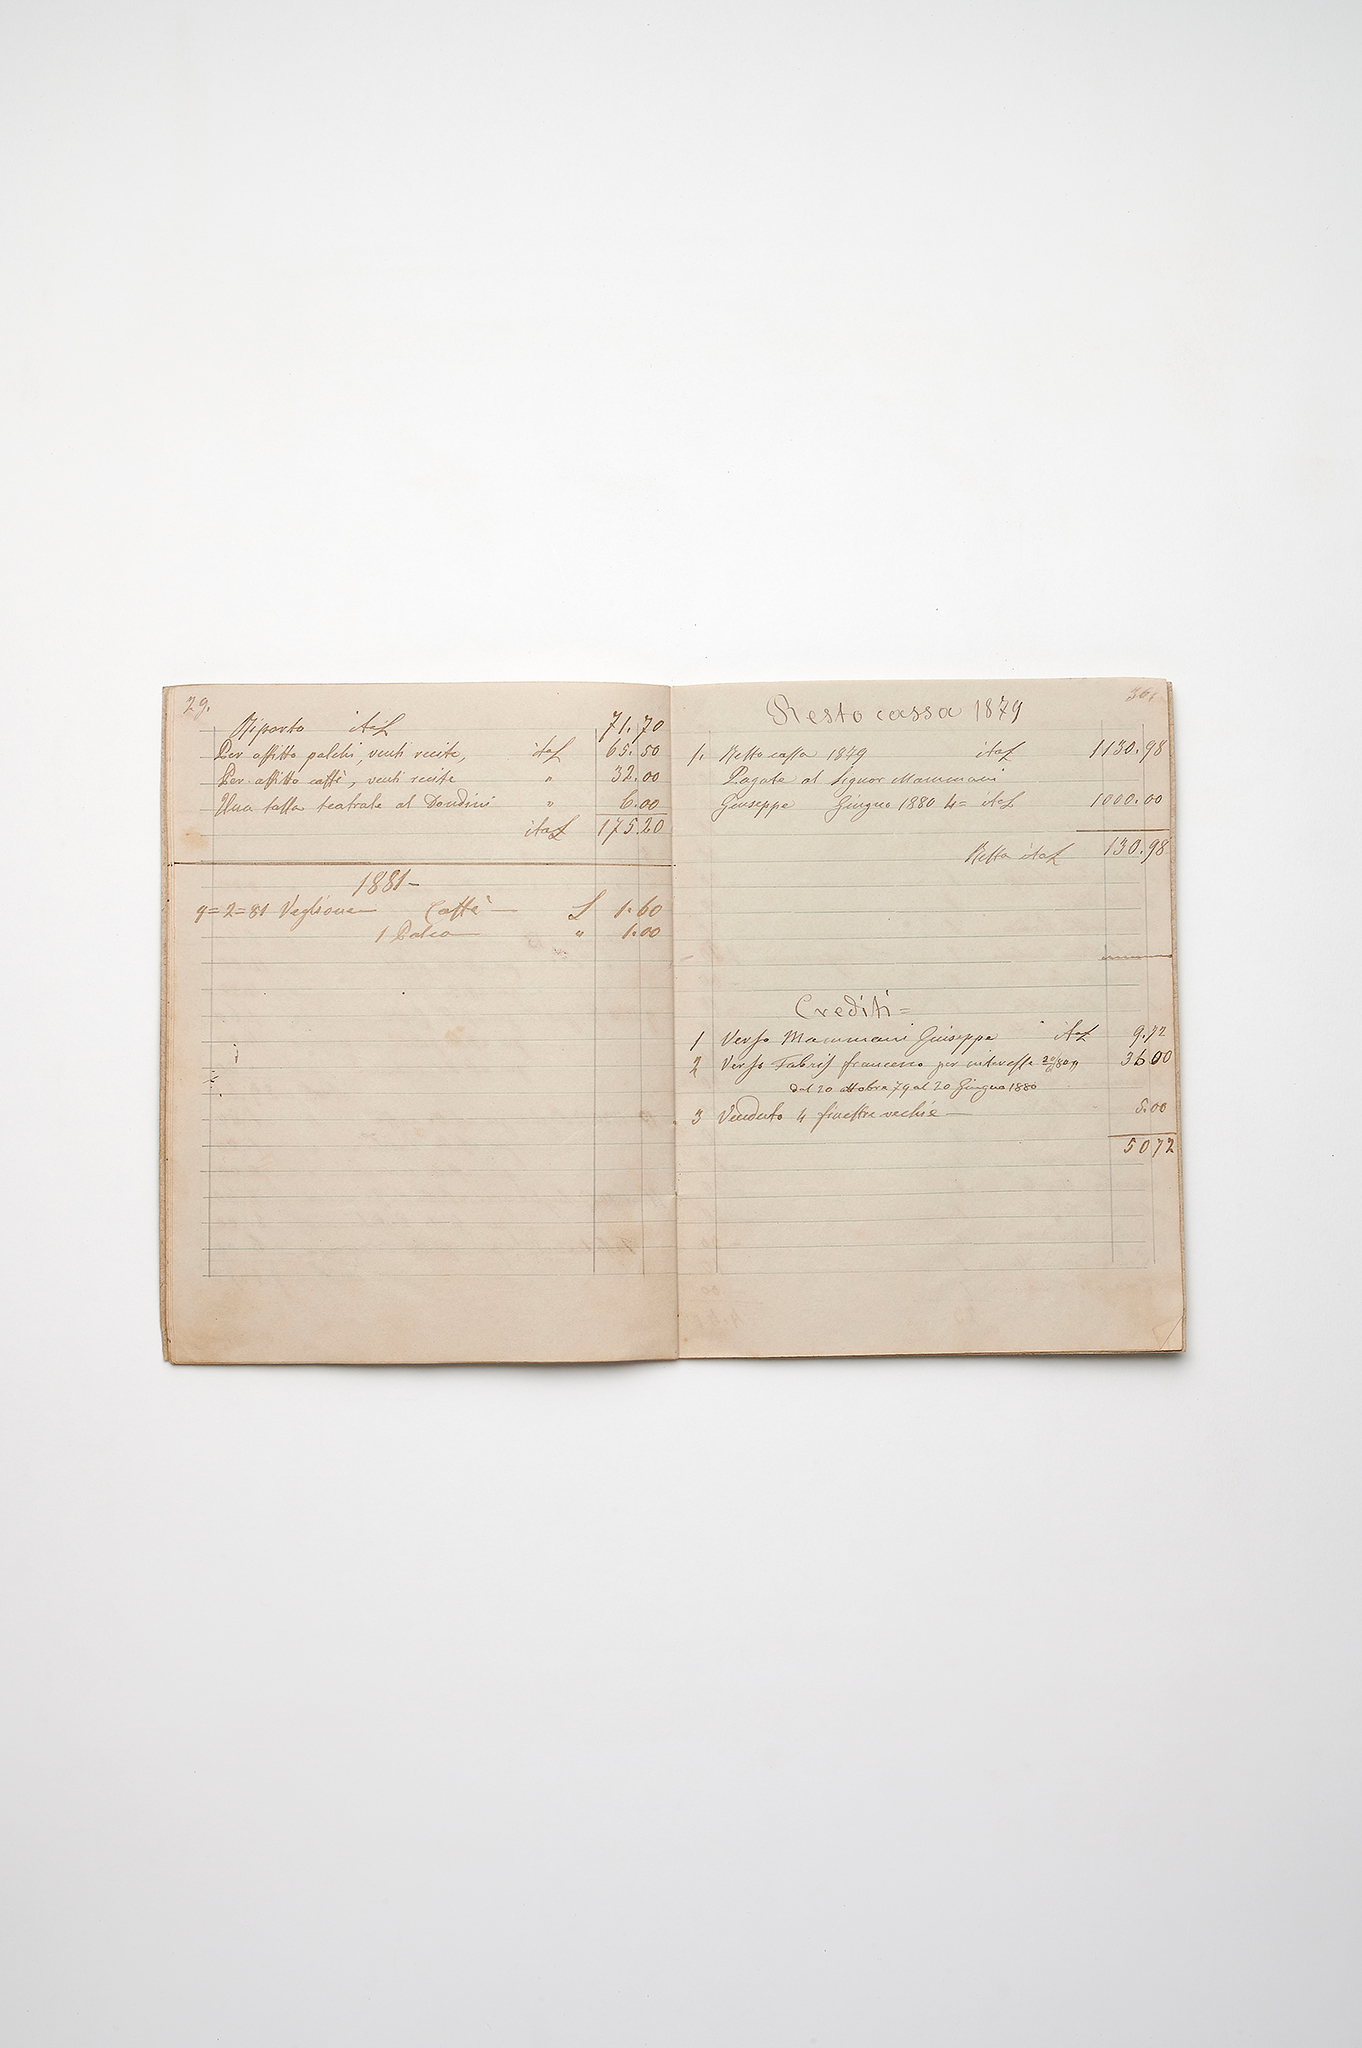 29.
Riporto itaL 71.70
Per affitto palchi, venti recite, itaL 65.50
Per affitto caffè, venti recite " 32.00
Una tassa teatrale al Dondini " 6.00
itaL 175.20
1881-
9=2=81 Veglione Caffè L 1.60
1 Palco " 1.00
30.
Resto cassa 1879
1. Resto cassa 1879 itaL 1130.98
Pagate al Signor Mammani
Giuseppe Giugno 1880 4= itaL 1000.00
Resta itaL 130.98
Crediti=
1 Verso Mammani Giuseppe itaL 9.72
2 Verso Fabris francesco per interesse 80 " 36 00
dal 20 ottobre 79 al 20 Giugno 1880
3 Venduto 4 finestre vechie 5.00
5072